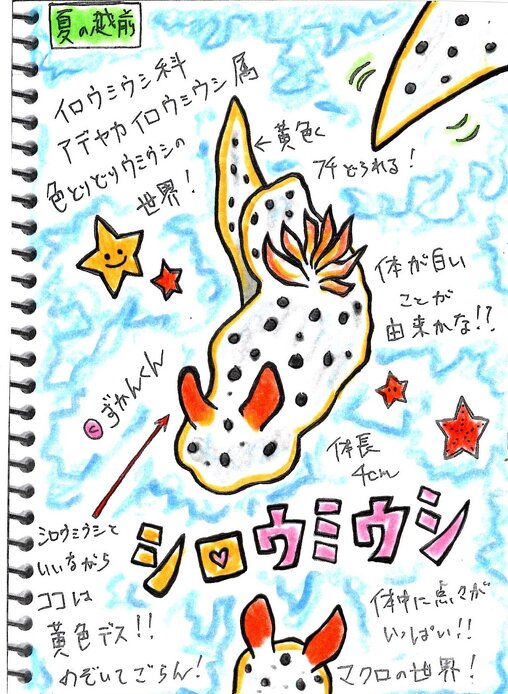 夏の越前
イロウミウシ科
アデヤカイロウミウシ属
色とりどりウミウシの
世界!
←黄色く
フチどられる!
体が白い
ことが
由来かな!?
©ずかんくん
体長
4cm
シロウミウシ
シロウミウシと
いいながら
ココは
黄色デス!!
のぞいてごらん!
体中に点々が
いっぱい!!
マクロの世界!